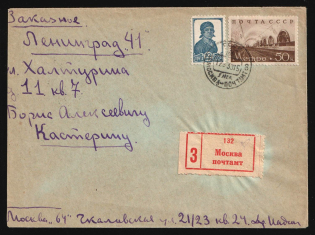 Заказное
Ленинград "41"
ул. Халтурина
д 11 кв 7
Борис Алексеевичу
Кастерину
ПОЧТА СССР
Метро
30
132
З
Москва
почтамт
Москва "64" Чкаловская ул. 21/23 кв 24.